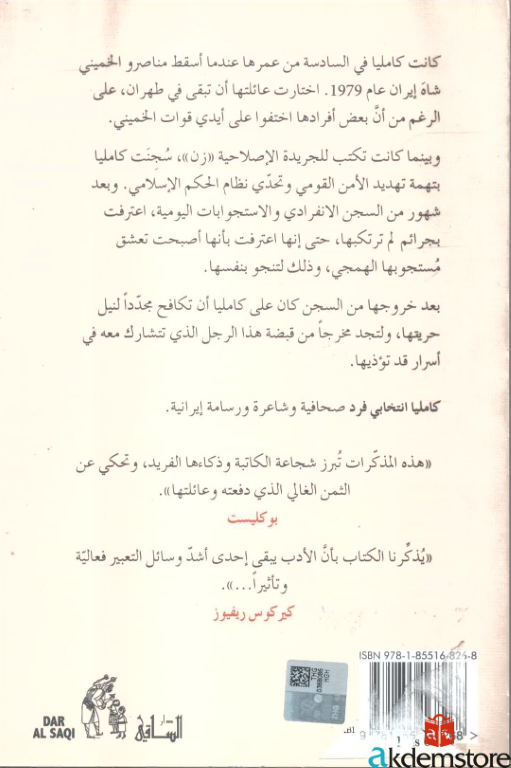 كانت كامليا في السادسة من عمرها عندما أسقط مناصرو الخميني
شاهَ إيران عام 1979. اختارت عائلتها أن تبقى في طهران، على
الرغم من أنَّ بعض أفرادها اختفوا على أيدي قوات الخميني.
وبينما كانت تكتب للجريدة الإصلاحية «زن»، سُجِنَت كامليا
بتهمة تهديد الأمن القومي وتحدّي نظام الحكم الإسلامي. وبعد
شهور من السجن الانفرادي والاستجوابات اليومية، اعترفت
بجرائم لم ترتكبها، حتى إنها اعترفت بأنها أصبحت تعشق
مُستجوبها الهمجي، وذلك لتنجو بنفسها.
بعد خروجها من السجن كان على كامليا أن تكافح مجدّداً لنيل
حريتها، ولتجد مخرجاً من قبضة هذا الرجل الذي تتشارك معه في
أسرار قد تؤذيها.
كامليا انتخابي فرد صحافية وشاعرة ورسامة إيرانية.
«هذه المذكّرات تُبرز شجاعة الكاتبة وذكاءها الفريد، وتحكي عن
الثمن الغالي الذي دفعته وعائلتها».
بوكليست
«يُذكِّرنا الكتاب بأنَّ الأدب يبقى إحدى أشدّ وسائل التعبير فعاليّة
وتأثيراً...».
كيركوس ريفيوز
ISBN 978-1-85516-826-8
DAR
AL SAQI
دار
الساقي
akdemstore